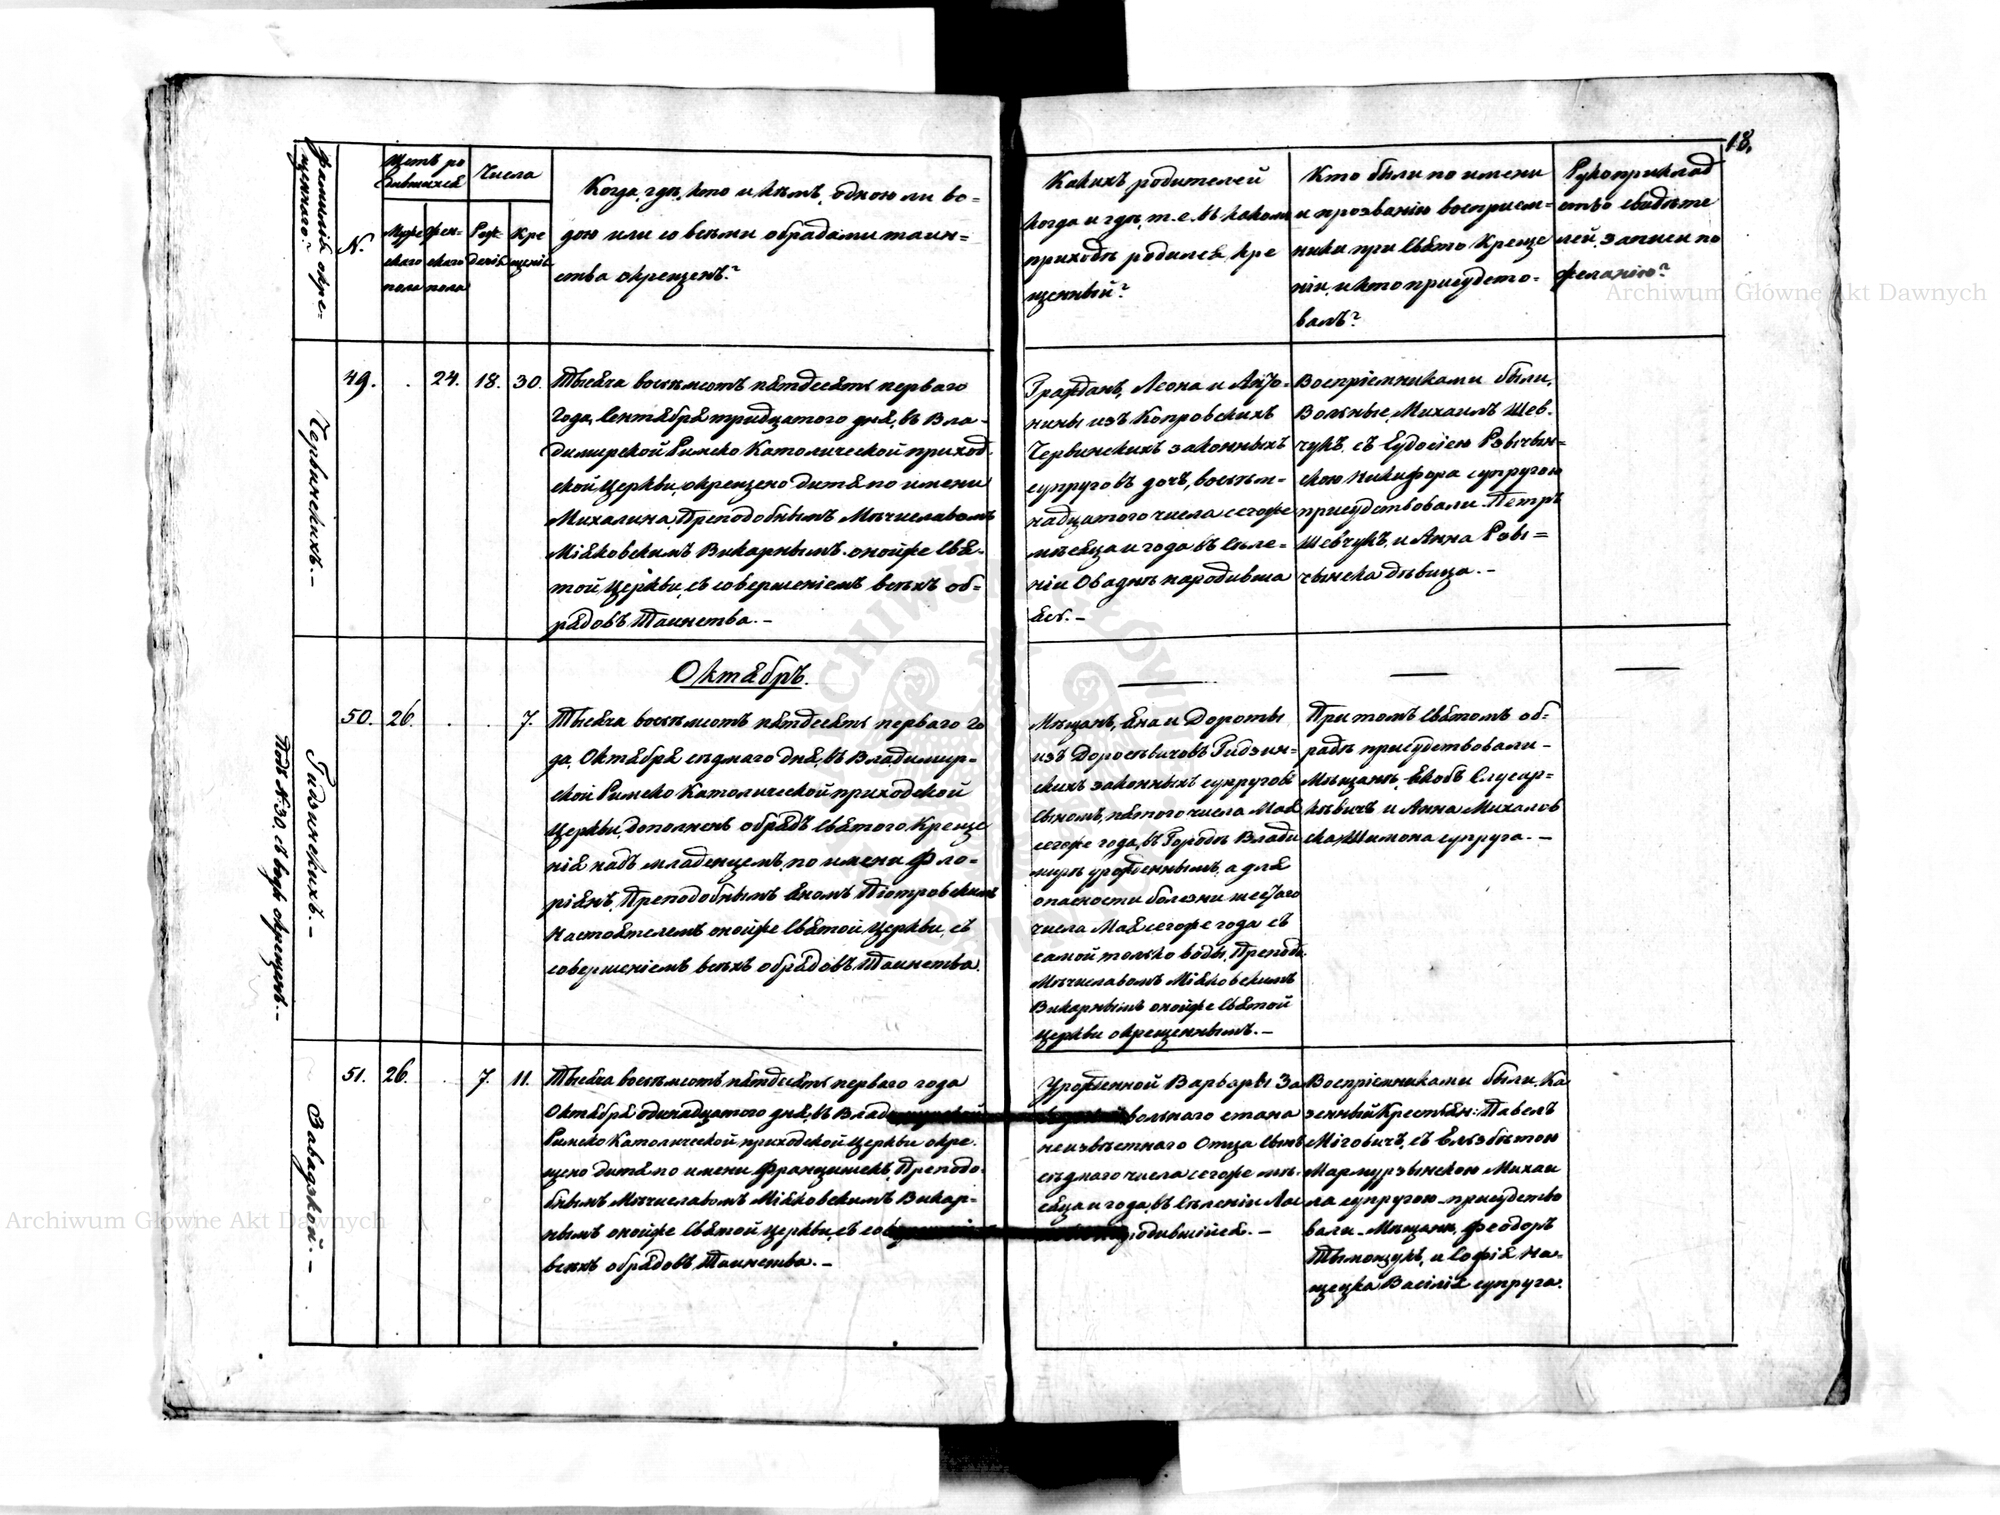 18.
Фамилія окре-
щеннаго?
N.
Щетъ ро
дившихся
Муже
скаго
пола
Жен-
скаго
пола
Числа
Рож-
денія
Кре
щенія
Когда, гдѣ, кто и кѣмъ, одною ли во-
дою или со всѣми обрядами таин-
ства окрещенъ?
Какихъ родителей
когда и гдѣ, т. е. въ какомъ
приходѣ родился кре
щенный?
Кто были по имени
и прозванію восприем-
ники при свято Креще
ніи, и кто присудство-
валъ?
Рукоприклад
ство свидѣте
лей записи по
желанію?
Червинскихъ. –
49. . 24. 18. 30.
Тысяча восемьсотъ пятдесятъ перваго
года, Сентября тридцатого дня, въ Вла-
димирской Римско Католической приход
ской Церкви, окрещено дитя по имени
Михалина, Преподобнымъ Мѣчиславомъ
Міяковскимъ Викарнымъ онойже Свя-
той Церкви, съ совершеніемъ всѣхъ об-
рядовъ Таинства. –
Граждань, Леона и Анто-
нины изъ Копровскихъ
Червинскихъ законныхъ
супруговъ дочь, восем-
надцатого числа сегоже
мѣсяца и года въ Селе-
ніи Оваднѣ народивша
яся. –
Воспріемниками были,
Вольные, Михаилъ Шев-
чукъ, съ Еудосіею Рэвычын-
скою Никифора супругою
присудствовали Петръ
Шевчукъ, и Анна Ровы-
чынска дѣвица. –
Октябрь.
Гидзинскихъ. –
Подъ N. 30. съ воды окрещенъ. –
50. 26. . . 7.
Тысяча восемьсотъ пятдесятъ перваго го
да, Октября седмаго дня, въ Владимир-
ской Римско Католической приходской
Церкви, дополненъ обрядъ Святого Креще
нія надъ младенцемъ, по имени Фло-
ріянъ, Преподобнымъ Яномъ Піотровскимъ
Настоятелемъ онойже Святой Церкви, съ
совершеніемъ всѣхъ обрядовъ Таинства.
Мѣщанъ, Яна и Дороты
изъ Доросѣвичовъ Гидзин-
скихъ законныхъ супруговъ
сыномъ, пятого числа Мая
сегоже года, въ Городѣ Влади
мирѣ урожденнымъ, а для
опасности болезни шестаго
числа Мая сегоже года съ
самой только воды, Преподо.
Мѣчиславомъ Міяковскимъ
Викарнымъ онойже Святой
Церкви окрещеннымъ. –
При томъ Святомъ об-
рядѣ присудствовали –
Мѣщанѣ, Якобъ Слусар-
кѣвичъ и Анна Михалов
ска Шимона супруга. –
Завадзкой. –
51. 26. . 7. 11.
Тысяча восемьсотъ пятдесятъ перваго года
Октября одинадцатого дня, въ Влад
Римско Католической приходской Церкви окре-
щено дитя по имени Францишекъ, Преподо-
бнымъ Мѣчиславомъ Міяковскимъ Викар-
нымъ онойже Святой Церкви, съ сов
всѣхъ обрядовъ Таинства. –
Урожденной Варвары За
вольного стана
неизвѣстнаго Отца сынъ
седмаго числа сегоже мѣ-
сяца и года, въ Селеніи
родившійся. –
Воспріемниками были, Ка
зенный Крестьян: Павелъ
Міговичъ, съ Ельзбѣтою
Мармурзынскою Михаи
ла супругою – присудство
вали – Мѣщанѣ, Феодоръ
Тымощукъ, и Софія На-
щецка Васілія супруга.
Archiwum Główne Akt Dawnych
Archiwum Główne Akt Dawnych